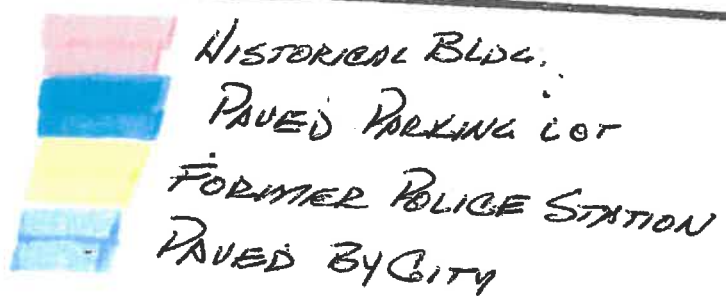 HISTORICAL BLDG.
PAVED PARKING LOT
FORMER POLICE STATION
PAVED BY CITY